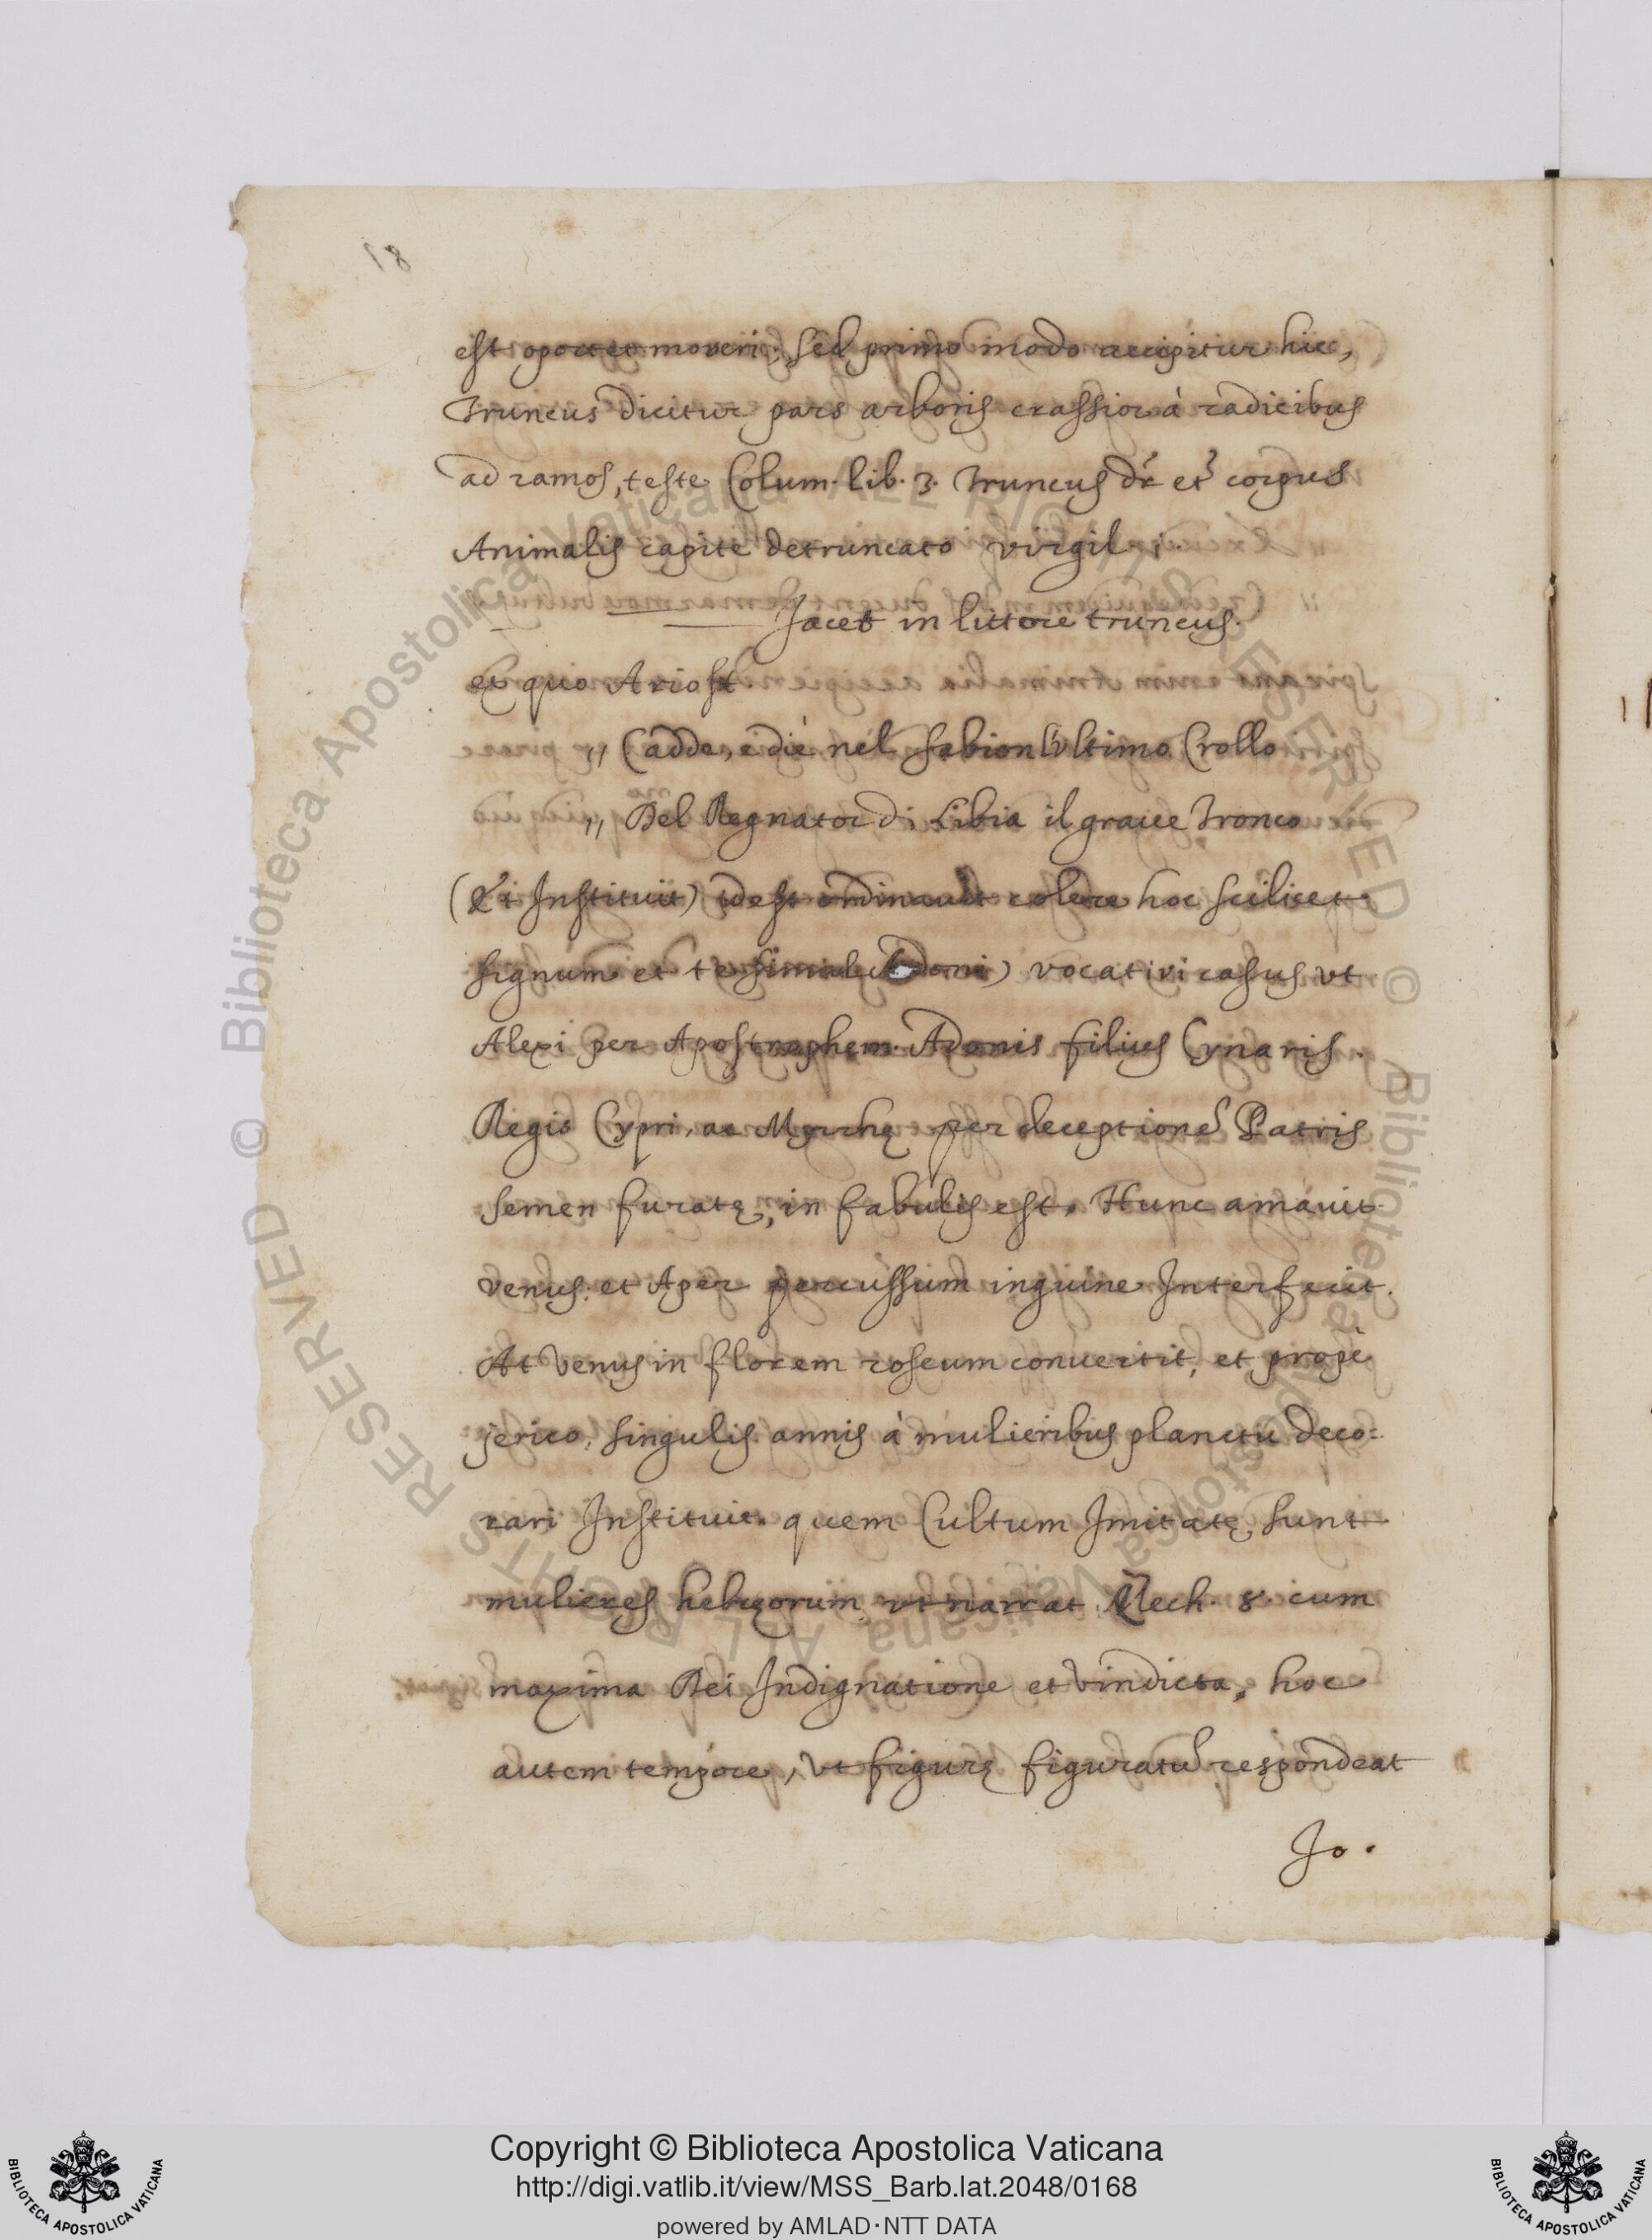 18
est oportet moveri; sed primo modo accipitur hic,
Truncus dicitur pars arboris crassior à radicibus
ad ramos, teste Colum. lib. 3. Truncus dr̃ et̃ corpus
Animalis capite detruncato virgil i.
Jacet in littore truncus.
ex quo Ariost.
,, Cadde, e diè nel sabion l'ultimo Crollo
,, Del Regnator di Libia il graue Tronco
(et Instituit) idest ordinauit colere hoc scilicet
signum et te simul Adoni) vocativi casus vt
Alexi per Apostrophem. Adonis filius Cynaris
Regis Cypri, ac Myrrhę per deceptionẽ Patris
semen furatę, in fabulis est. Hunc amauit
venus: et Aper percussum inguine Interfecit.
At Venus in florem roseum conuertit, et prope
jerico, singulis annis à mulieribus planctu deco=
rari Instituit. quem Cultum Imitatę sunt
mulieres hebręorum vt narrat Zech. 8. cum
maxima Dei Indignatione et vindicta, hoc
autem tempore, Vt figurę figuratũ respondeat
Jo.
© Biblioteca Apostolica Vaticana ALL RIGHTS RESERVED © Biblioteca Apostolica Vaticana ALL RIGHTS RESERVED
Copyright © Biblioteca Apostolica Vaticana
http://digi.vatlib.it/view/MSS_Barb.lat.2048/0168
powered by AMLAD·NTT DATA
BIBLIOTECA APOSTOLICA VATICANA
BIBLIOTECA APOSTOLICA VATICANA